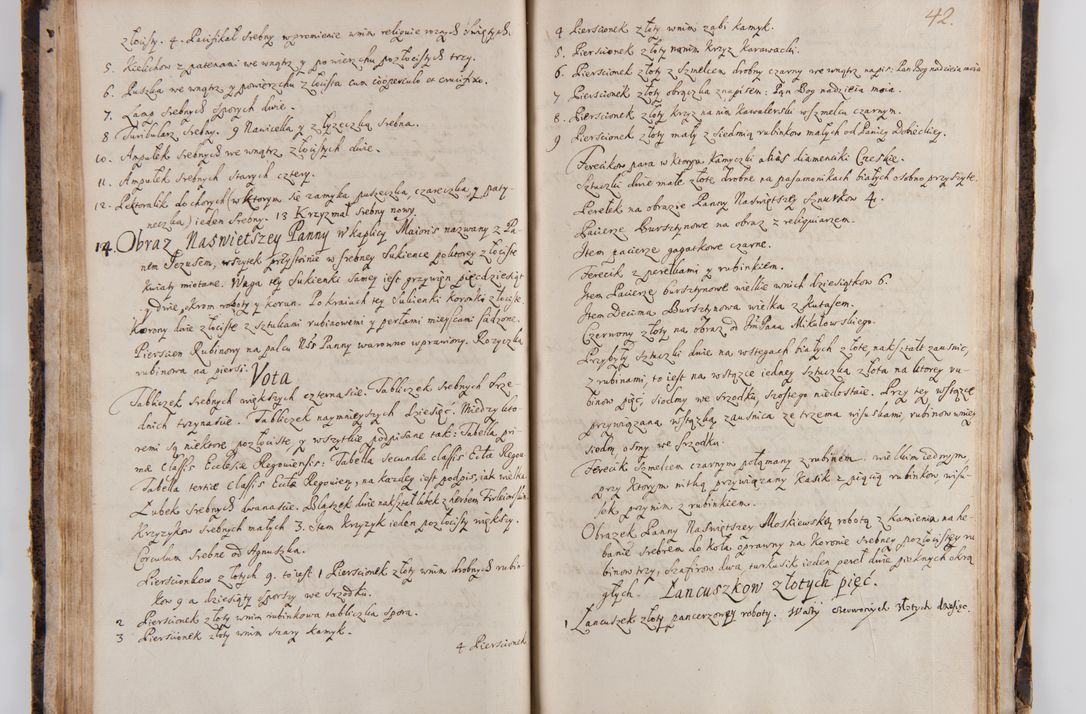 złocisty. 4. Pacifikał srebny w promienie w nim religuie roznych Swiętych.
5. Kielichow z patenami we wnątrz y po wierzchu pozłocistych trzy.
6. Puszka we wnątrz y powierzchu złocista cum cooperculo et crucifixo.
7. Lamp srebnych sporych dwie.
8 Turibularz srebny. 9 Nawicella y z łyzeczką srebna.
10. Ampułek srebnych we wnątrz złocistych dwie.
11. Ampułek srebnych starych cztery.
12. Pektoralik do chorych w ktorym się zamyka puszeczka, czareczka y paty-
neczka) ieden srebny. 13 Krzyzmał srebny nowy
14. Obraz Naswietszey Panny w kaplicy Maioris nazwany z Pa-
nem Jezusem, wszytek przystoinie w srebney sukience po ktorey złociste
kwiaty mietane. Waga tey sukienki samey iest grzywien pięcdziesiąt
dwie okrom roboty y korun. Po kraiuch tey sukienki koronki złociste
Korony dwie złociste z sztukami rubinowemi y perłami mieyscami sadzone.
Piersciem Rubinowy na palcu NSS Panny warowno wprawiony. Rozyczka
rubinowa na piersi.
Vota
Tabliczek srebnych większych czternascie. Tabliczek srebnych srze-
dnich trzynascie. Tabliczek naymnieyszych dziesięc. Miedzy kto-
remi są niektore pozłociste, y wszytkie podpisane tak: Tabella pri-
mæ Classis Ecclesiæ Regoviensis: Tabella secundæ classis Eccle Regou
Tabella tertiæ Classis Eccle Regovien, na kazdey iest podpis, iak wielka.
Lubek srebnych dwanascie. Blaszek dwie nakształt lubek z herbem
Krzyzykow srebnych małych 3. Item krzyzyk ieden pozłocisty większy.
Corculum srebne od Agnuszka.
Pierscionkow złotych 9. to iest 1 Pierscionek złoty w nim drobnych rubin-
kow 9 a dziesiąty sporszy we srzodku.
2 Pierscionek złoty w nim rubinkowa tabliczka spora.
3 Pierscionek złoty w nim szary kamyk.
4. Pierscionek
42.
4 Pierscionek złoty w nim zabi kamyk.
5. Pierscionek złoty na nim krzyz karawacki.
6. Pierscionek złoty z szmelcem drobny czarny we wnątrz napis: Pan Bog nadzieia moia
7 Pierscionek złoty obrączka z napisem: Pan Bog nadzieia moia.
8. Pierscionek złoty krzyz na nim kawalerski w szmelcu czarnym.
9 Pierscionek złoty mały z siedmią rubinkow małych od Panicy
Ferecikow para w ktorych kamyczki alias diamenciki Czeskie.
Sztuczki dwie małe złote drobne na pasamonikach białych osobno przyszyte.
Perełek na obrazie Panny Naswiętszey sznurkow 4.
Pacierze Bursztynowe na obraz z reliquiarzem.
Item pacierze gagatkowe czarne.
Ferecik z perełkami y rubinkiem.
Item Pacierze bursztynowe wielkie w nich dziesiątkow 6.
Item Decima Bursztynowa wielka z kutasem.
Czerwony złoty na obraz od ImPana Mikałowskiego.
Przybyły sztuczki dwie na wstęgach białych złote nakształt zausnic,
z rubinami, to iest na wstązce iedney sztuczka złota na ktorey ru-
binow pięc, siodmy we srzodku, szostego niedostaie. Przy tey wstązce
przywiązana wstązka, zausnica ze trzema wisułkami, rubinow w niey
siedm, osmy we srzodku.
Ferecik szmelcem czarnym połamany z rubinem wielkim iednym,
przy ktorym nitką przywiązany kasik z pięcią rubinkow, wisu-
łek przy nim z rubinkiem.
Obrazek Panny Naswiętszey Moskiewską robotą z kamienia na he-
banie srebrem do koła oprawny na koronie srebney pozłocistey ru
binow trzy, szafirow dwa, turkusik ieden pereł dwie pieknych okrą
głych. Lancuszkow złotych pięc.
1 Lancuszek złoty pancerzowey roboty. Wazy czerwonych złotych